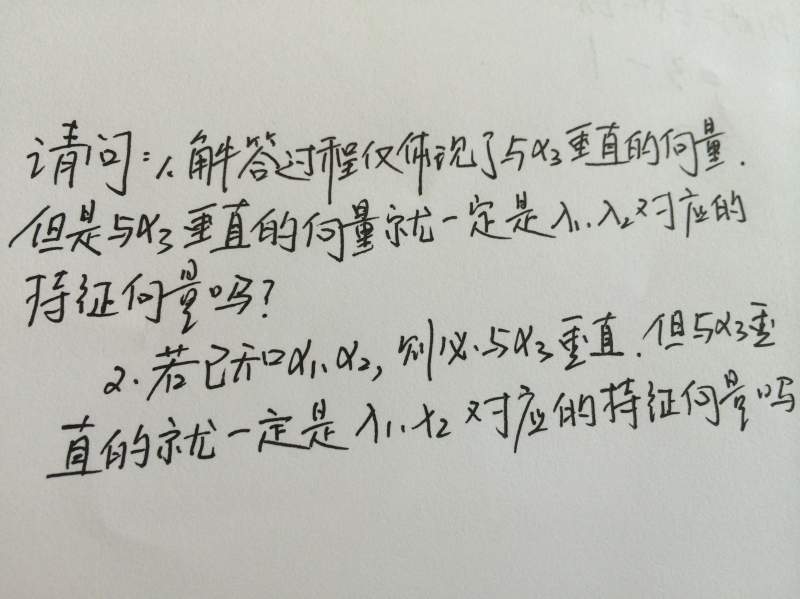 请问:1.解答过程仅体现了与α3垂直的向量.
但是与α3垂直的向量就一定是λ1.λ2对应的
特征向量吗?
2.若已知α1,α2,则必与α3垂直.但与α3垂
直的就一定是λ1.λ2对应的特征向量吗